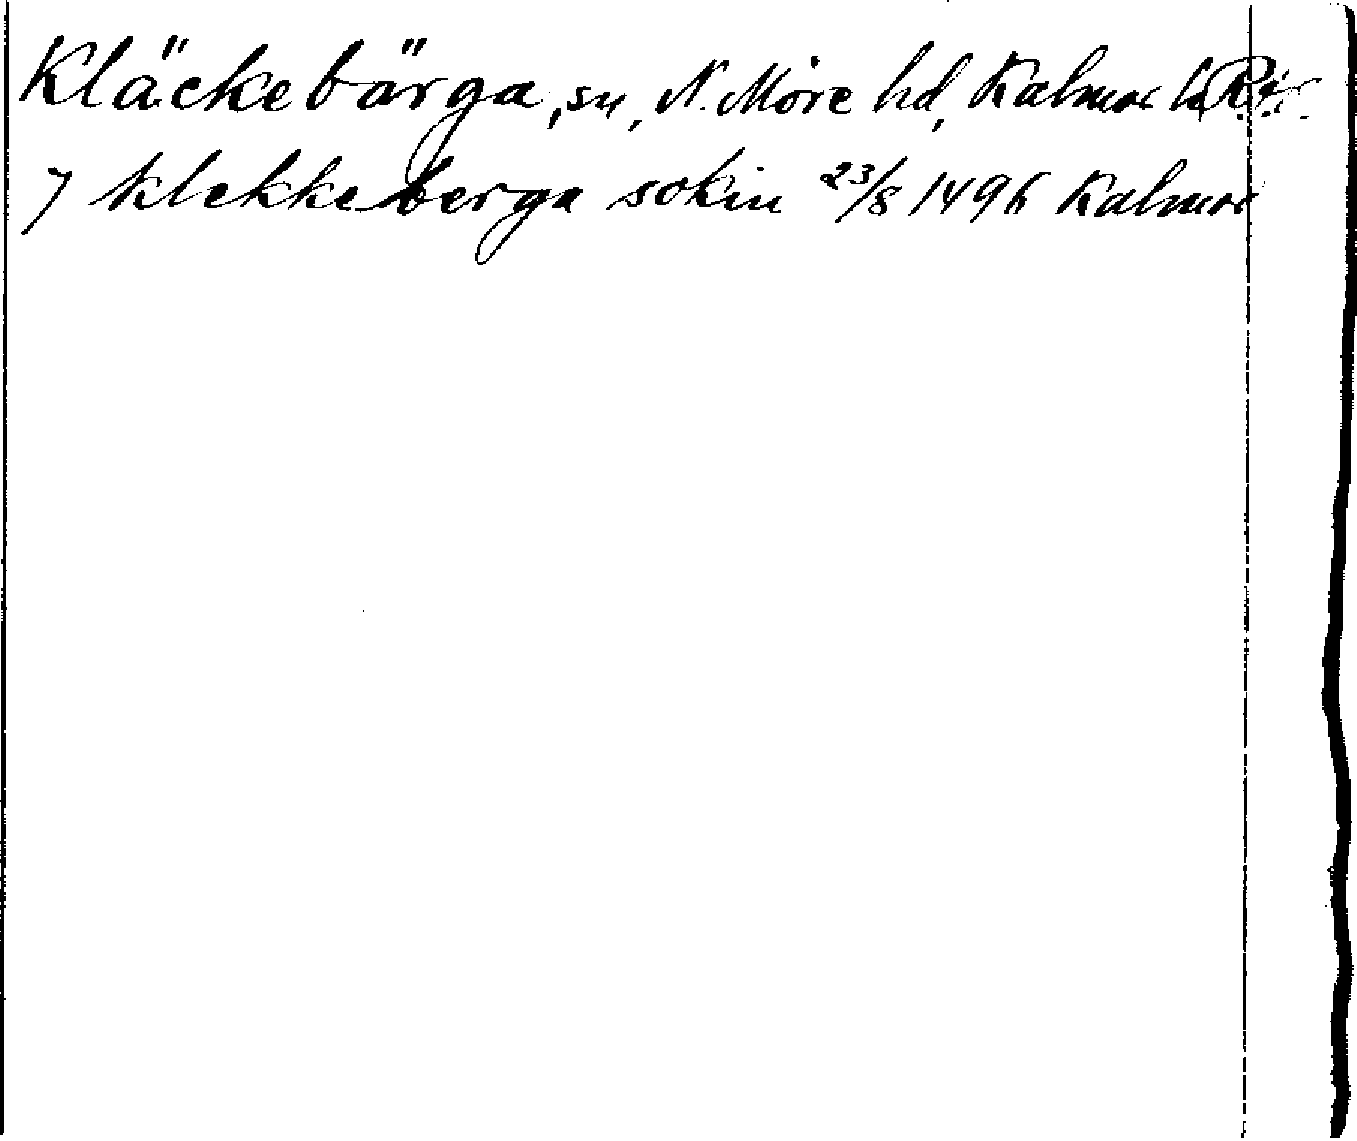 Kläckebärga, sn, N. Möre hd, Kalmar l.
J klekkeberga sokin 23/8 1496 Kalmar